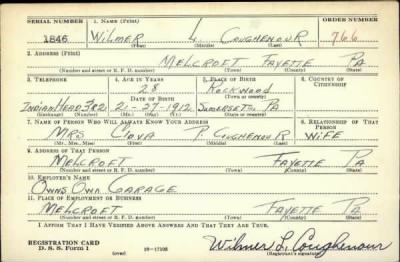 SERIAL NUMBER 1. NAME (Print) ORDER NUMBER
1846 WILMER L. COUGHENOUR 766
(First) (Middle) (Last)
2. ADDRESS (Print)
MELCROFT FAYETTE PA
(Number and street or R. F. D. number) (Town) (County) (State)
3. TELEPHONE 4. AGE IN YEARS 5. PLACE OF BIRTH 6. COUNTRY OF CITIZENSHIP
28 ROCKWOOD
DATE OF BIRTH (Town or county)
INDIAN HEAD 2-27-1912 SOMERSET PA
(Exchange) (Number) (Mo.) (Day) (Yr.) (State or country)
7. NAME OF PERSON WHO WILL ALWAYS KNOW YOUR ADDRESS 8. RELATIONSHIP OF THAT PERSON
MRS P. COUGHENOUR WIFE
(Mr., Mrs., Miss) (First) (Middle) (Last)
9. ADDRESS OF THAT PERSON
MELCROFT FAYETTE PA
(Number and street or R. F. D. number) (Town) (County) (State)
10. EMPLOYER'S NAME
OWNS OWN GARAGE
11. PLACE OF EMPLOYMENT OR BUSINESS
MELCROFT FAYETTE PA
(Number and street or R. F. D. number) (Town) (County) (State)
I AFFIRM THAT I HAVE VERIFIED ABOVE ANSWERS AND THAT THEY ARE TRUE.
REGISTRATION CARD
D. S. S. Form 1 (over) 16-17105 Wilmer L. Coughenour
(Registrant's signature)